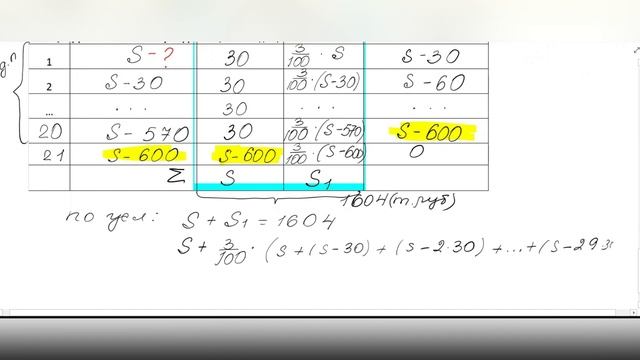 1 S-? 30 3/100 · S S-30
2 S-30 30 3/100 · (S-30) S-60
... ... 30 ... ...
20 S-570 30 3/100 · (S-570) S-600
21 S-600 S-600 3/100 · (S-600) 0
Σ S S₁
1604 (т. руб)
по усл: S + S₁ = 1604
S + 3/100 · (S + (S-30) + (S-2·30) + ... + (S-29·3